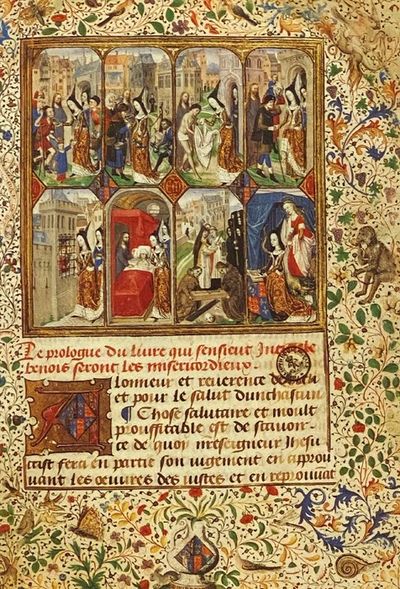 Le prologue du livre qui sensieut Intitule
benois seront les misericordieux.
A lonneur et reverence de
et pour le salut dunchascun
¶ Chose salutaire et moult
prouffitable est de scavoir
ce de quoy nreseigneur Jhesu
crist fera en partie son jugement en approu
vant les œuvres des justes et en reprouvat